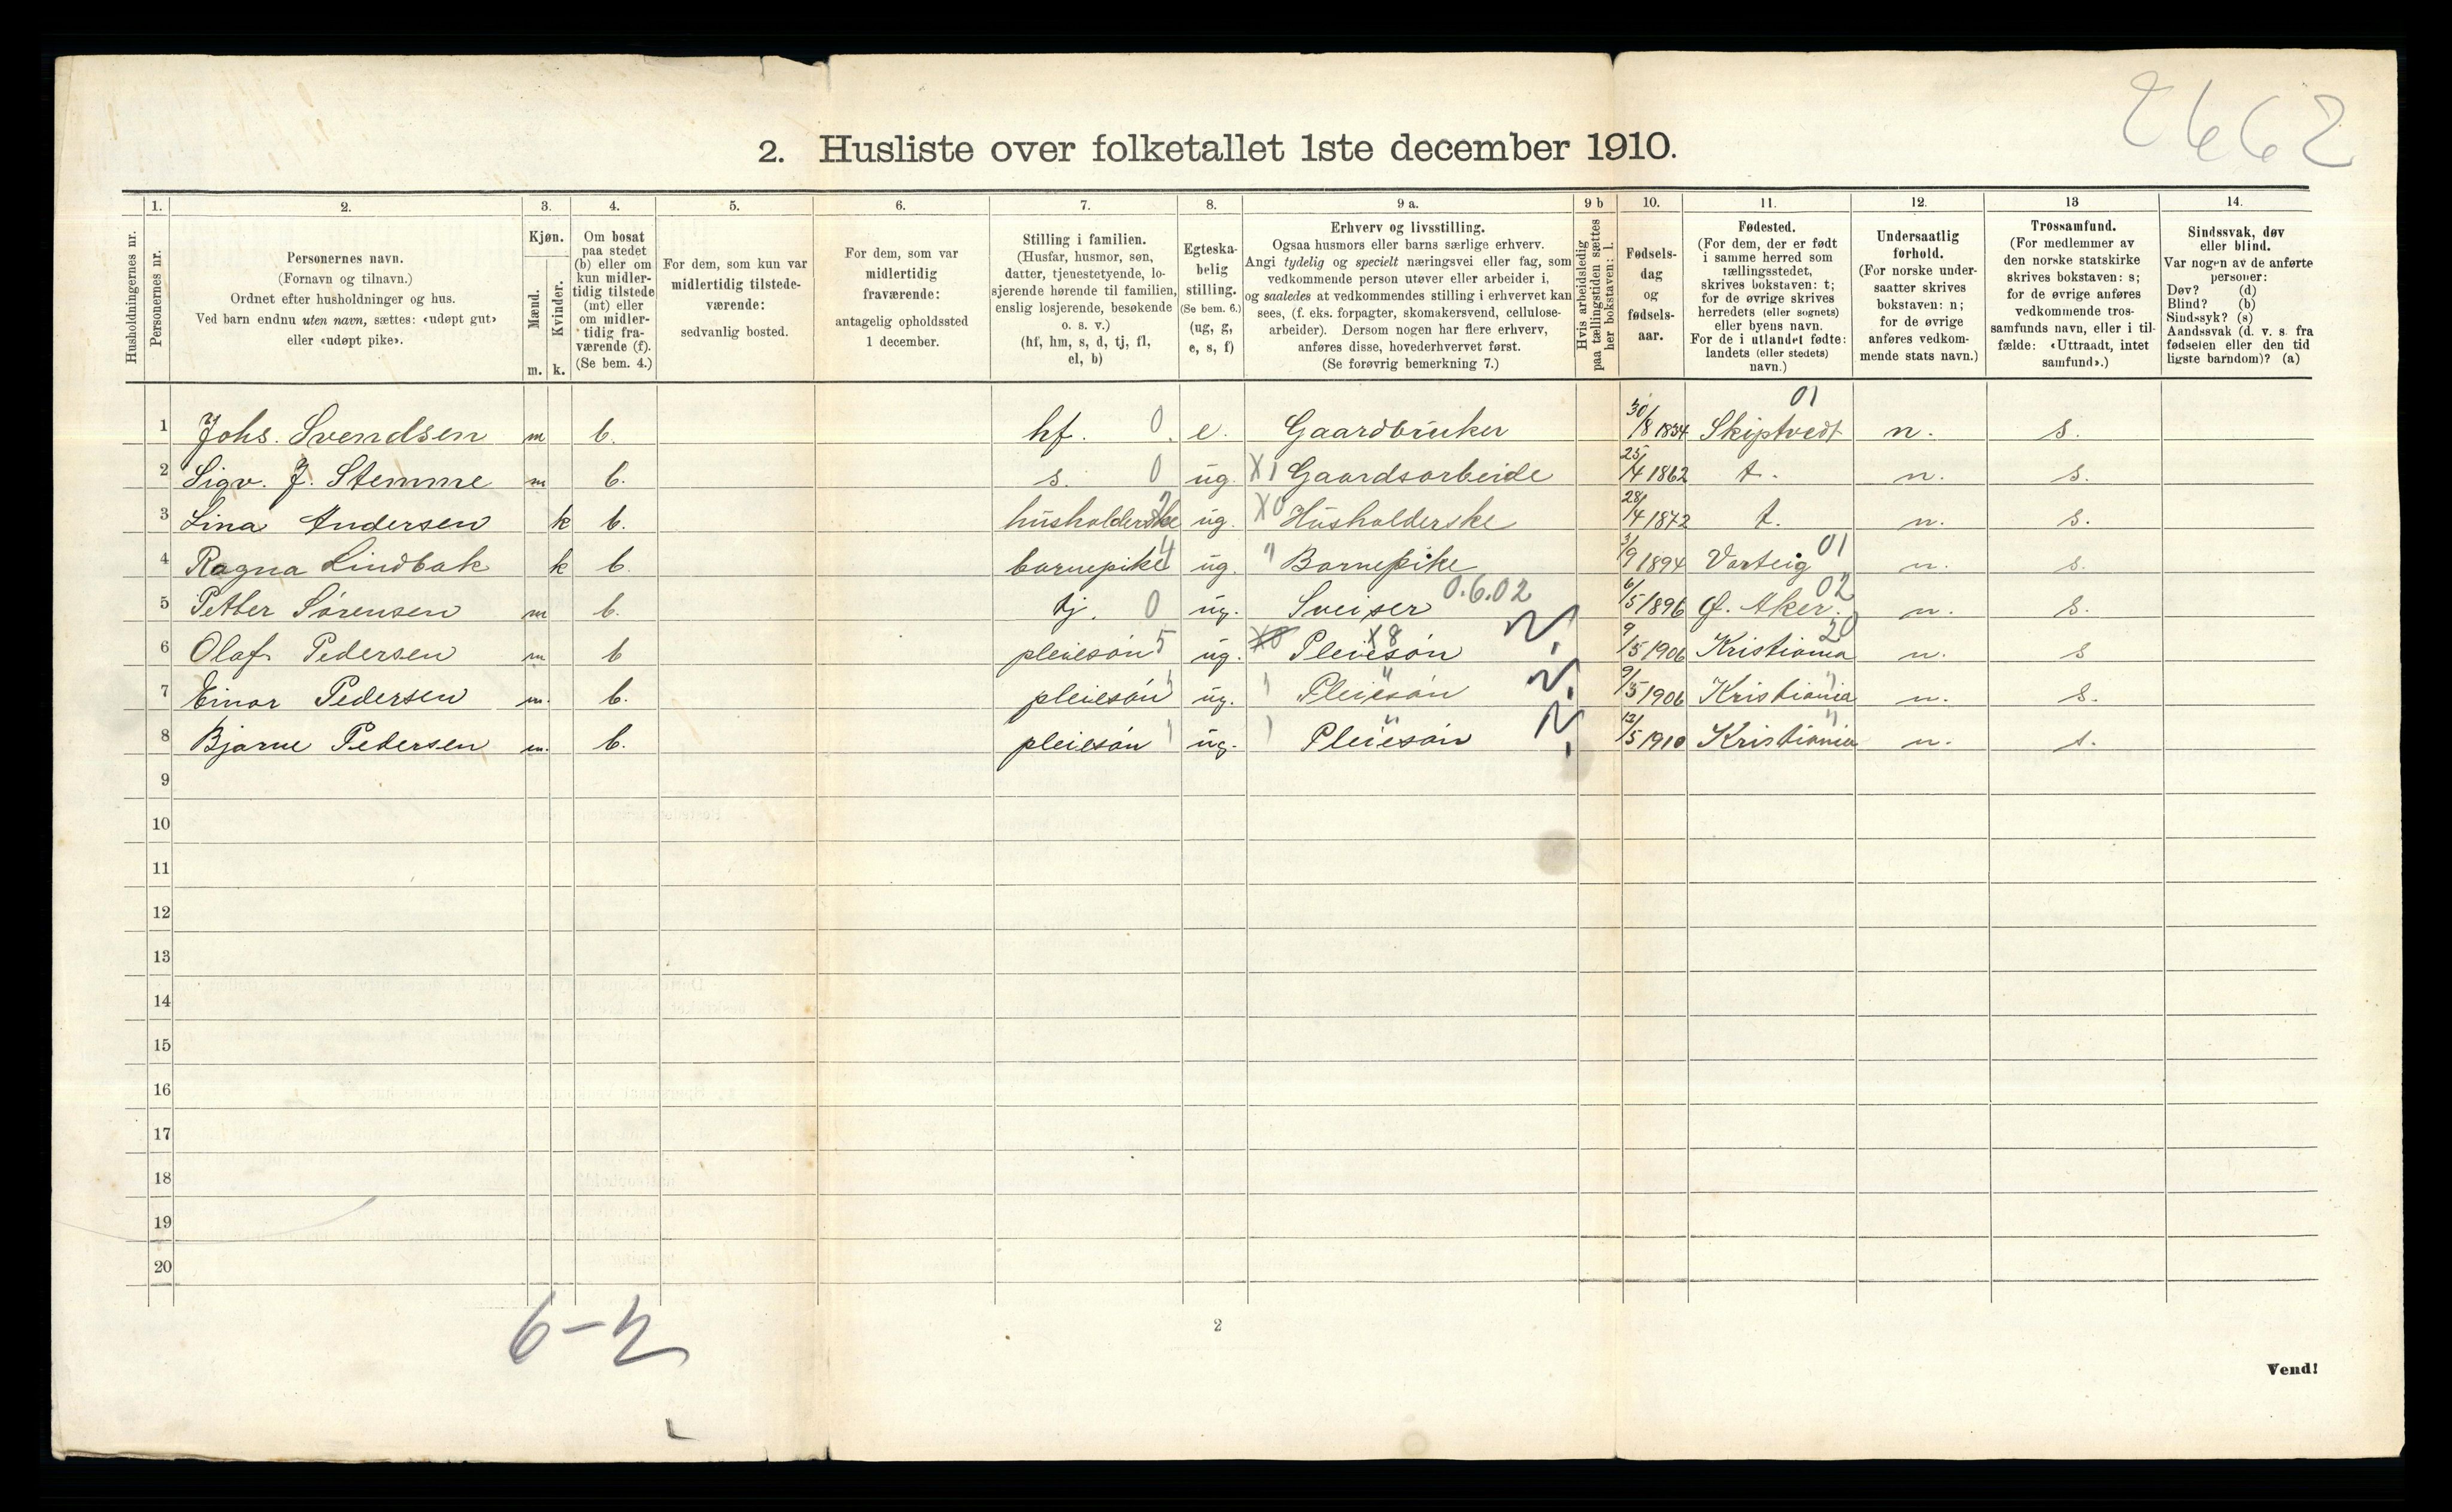 2662
2. Husliste over folketallet 1ste december 1910.
1. 2. 3. 4. 5. 6. 7. 8. 9 a. 9 b 10. 11. 12. 13 14.
Husholdningernes nr.
Personernes nr.
Personernes navn.
(Fornavn og tilnavn.)
Ordnet efter husholdninger og hus.
Ved barn endnu uten navn, sættes: «udøpt gut»
eller «udøpt pike».
Kjøn.
Mænd.
Kvinder.
m. k.
Om bosat
paa stedet
(b) eller om
kun midler-
tidig tilstede
(mt) eller
om midler-
tidig fra-
værende (f).
(Se bem. 4.)
For dem, som kun var
midlertidig tilstede-
værende:
sedvanlig bosted.
For dem, som var
midlertidig
fraværende:
antagelig opholdssted
1 december.
Stilling i familien.
(Husfar, husmor, søn,
datter, tjenestetyende, lo-
sjerende hørende til familien,
enslig losjerende, besøkende
o. s. v.)
(hf, hm, s, d, tj, fl,
el, b)
Egteska-
belig
stilling.
(Se bem. 6.)
(ug, g,
e, s, f)
Erhverv og livsstilling.
Ogsaa husmors eller barns særlige erhverv.
Angi tydelig og specielt næringsvei eller fag, som
vedkommende person utøver eller arbeider i,
og saaledes at vedkommendes stilling i erhvervet kan
sees, (f. eks. forpagter, skomakersvend, cellulose-
arbeider). Dersom nogen har flere erhverv,
anføres disse, hovederhvervet først.
(Se forøvrig bemerkning 7.)
Hvis arbeidsledig
paa tællingstiden sættes
her bokstaven: l.
Fødsels-
dag
og
fødsels-
aar.
Fødested.
(For dem, der er født
i samme herred som
tællingsstedet,
skrives bokstaven: t;
for de øvrige skrives
herredets (eller sognets)
eller byens navn.
For de i utlandet fødte:
landets (eller stedets)
navn.)
Undersaatlig
forhold.
(For norske under-
saatter skrives
bokstaven: n;
for de øvrige
anføres vedkom-
mende stats navn.)
Trossamfund.
(For medlemmer av
den norske statskirke
skrives bokstaven: s;
for de øvrige anføres
vedkommende tros-
samfunds navn, eller i til-
fælde: «Uttraadt, intet
samfund».)
Sindssvak, døv
eller blind.
Var nogen av de anførte
personer:
Døv? (d)
Blind? (b)
Sindssyk? (s)
Aandssvak (d. v. s. fra
fødselen eller den tid-
ligste barndom)? (a)
01
1 Johs. Svendsen m b. hf. 0 e. Gaardbruker 30/8 1834 Skiptvedt n. s.
2 Sigv. J. Stemme m b. s. 0 ug. X1 Gaardsarbeide 25/4 1862 t. n. s.
3 Lina Andersen k b. husholderske 2 ug. X0 Husholderske 28/4 1872 t. n. s.
4 Ragna Lindbak k b. barnepike 4 ug. " Barnepike 3/9 1894 Varteig 01 n. s.
5 Petter Sørensen m b. tj. 0 ug. Sveiser 0.6.02 6/5 1896 Ø. Aker. 02 n. s.
6 Olaf Pedersen m b pleiesøn 5 ug. X0 Pleiesøn X8 9/5 1906 Kristiania 20 n. s
7 Einar Pedersen m. b. pleiesøn " ug. " Pleiesøn " 9/5 1906 Kristiania " n. s.
8 Bjarne Pedersen m. b. pleiesøn " ug. " Pleiesøn " 13/5 1910 Kristiania " n. s.
9
10
11
12
13
14
15
16
17
18
19
20
6-2
2
Vend!